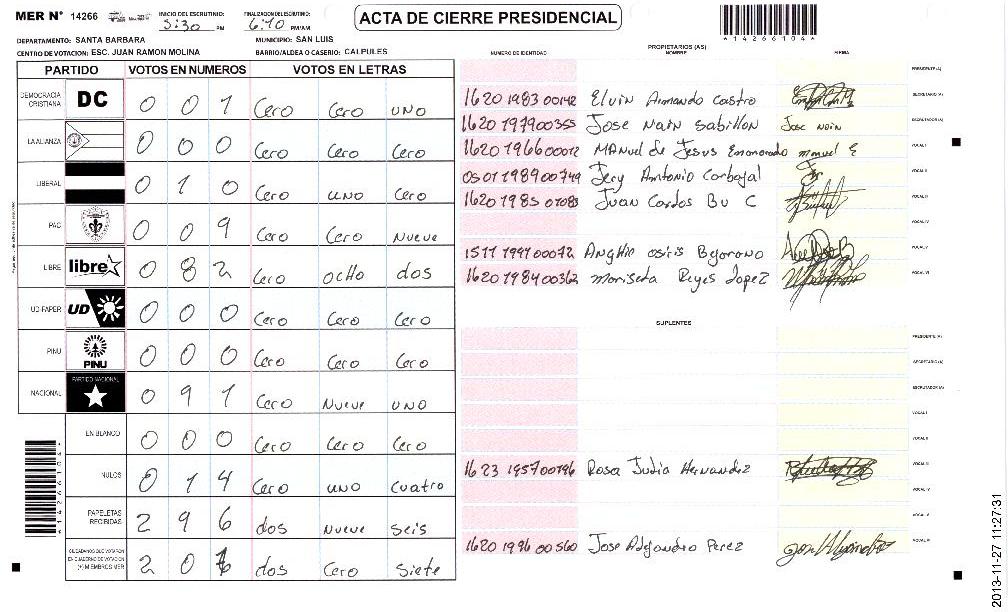 MER N° 14266 INICIO DEL ESCRUTINIO: 5:30 PM FINALIZACION DEL ESCRUTINIO: 6:10 PM/AM
ACTA DE CIERRE PRESIDENCIAL
*14266104*
DEPARTAMENTO: SANTA BARBARA MUNICIPIO: SAN LUIS
CENTRO DE VOTACION: ESC. JUAN RAMON MOLINA BARRIO/ALDEA O CASERIO: CALPULES
NUMERO DE IDENTIDAD PROPIETARIOS (AS) NOMBRE FIRMA
PARTIDO VOTOS EN NUMEROS VOTOS EN LETRAS
PRESIDENTE (A)
DEMOCRACIA CRISTIANA DC 0 0 1 Cero Cero uno
1620 1983 00142 Elvin Armando Castro SECRETARIO (A)
1620 1979 00355 Jose Nain Sabillon Jose Nain ESCRUTADOR (A)
LA ALIANZA 0 0 0 Cero Cero Cero
1620 1966 00012 Manuel de Jesus Enamorado manuel E VOCAL I
LIBERAL 0 1 0 Cero uno Cero
0501 1989 00749 Jery Antonio Carbajal VOCAL II
1620 1985 01083 Juan Carlos Bu C VOCAL III
PAC 0 0 9 Cero Cero Nueve
VOCAL IV
1517 1991 00072 Anghie osiris Bejarano VOCAL V
LIBRE libre 0 8 2 Cero ocho dos
1620 1984 00362 Mariseta Reyes Lopez VOCAL VI
UD-FAPER UD 0 0 0 Cero Cero Cero
SUPLENTES
PRESIDENTE (A)
PINU PINU 0 0 0 Cero Cero Cero
SECRETARIO (A)
NACIONAL PARTIDO NACIONAL 0 9 1 Cero Nueve uno
ESCRUTADOR (A)
VOCAL I
EN BLANCO 0 0 0 Cero Cero Cero
VOCAL II
NULOS 0 1 4 Cero uno cuatro
1623 1957 00196 Rosa Judia Hernandez VOCAL III
VOCAL IV
PAPELETAS RECIBIDAS 2 9 6 dos Nueve seis
VOCAL V
CIUDADANOS QUE VOTARON EN CUADERNO DE VOTACION (+) MIEMBROS MER 2 0 7 dos Cero Siete
1620 1996 00560 Jose Alejandro Perez VOCAL VI
*14266104*
2013-11-27 11:27:31